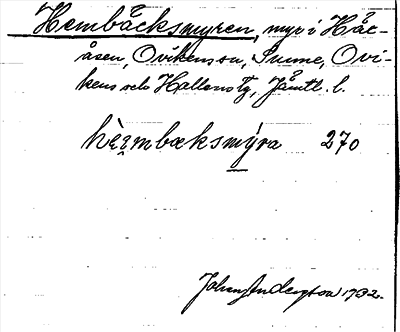 Hembäcksmyren, myr i Häc-
åsen, Ovikens sn, Sunne, Ovi-
kens och Hallens tg, Jämtl. l.
hèmbæksmýra 270
Johan Anderzson 1932.